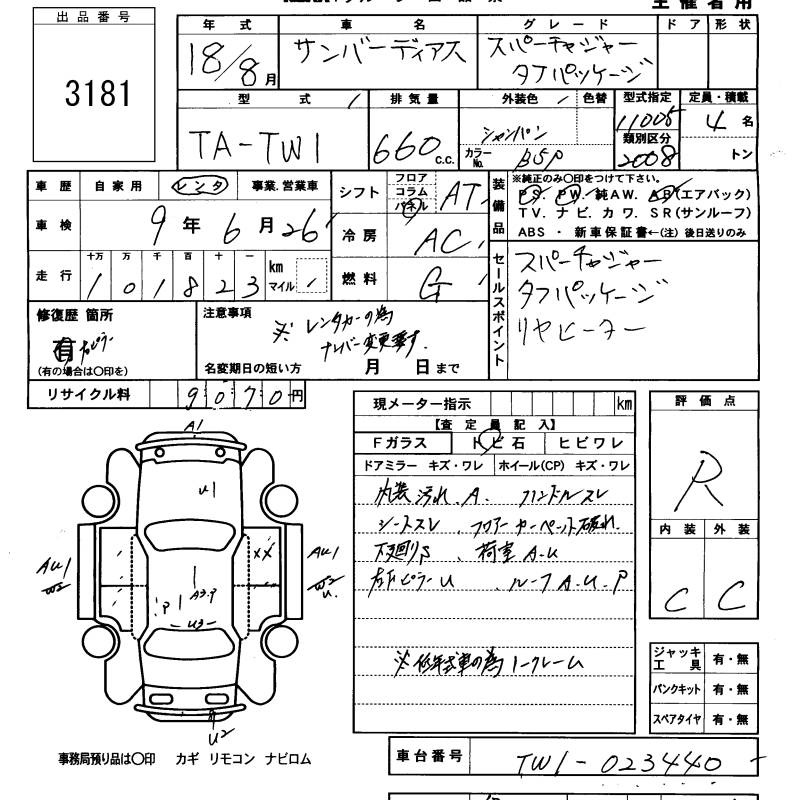 主催者用
出品番号
3181
年式 車名 グレード ドア 形状
18/8月 サンバーディアス スーパーチャジャー
タフパッケージ
型式 排気量 外装色 色替 型式指定 定員・積載
TA-TW1 660c.c. シャンパン 11005 4名
カラーNo. BSP 類別区分
2008 トン
車歴 自家用 レンタ 事業.営業車
シフト フロア コラム パネル AT
装備品 ※純正のみ○印をつけて下さい。
PS. PW. 純AW. AB(エアバック)
TV. ナビ. カワ. SR(サンルーフ)
ABS ・ 新車保証書←(注) 後日送りのみ
車検 9年6月26
冷房 AC
走行 十万 万 千 百 十 一
101823 km マイル
燃料 G
セールスポイント
スーパーチャジャー
タフパッケージ
リヤヒーター
修復歴 箇所
有
(有の場合は○印を)
注意事項
※ レンタカーの為
ナンバー変更要す.
名変期日の短い方 月 日まで
リサイクル料 9070円
現メーター指示 km
【査定員記入】
Fガラス トビ石 ヒビワレ
ドアミラー キズ・ワレ ホイール(CP) キズ・ワレ
内装汚れ.A. ハンドルスレ
シートスレ. フロアーカーペット破れ.
下廻りS. 荷室A.U
右下ピラーU. ルーフA.U.P
※低年式車の為ノークレーム
評価点
R
内装 外装
C C
ジャッキ工具 有・無
パンクキット 有・無
スペアタイヤ 有・無
A1
U1
AU1
W2
XX
AU1
W2
U.
A3.P
P
U3
U2
事務局預り品は○印 カギ リモコン ナビロム
車台番号 TW1-023440